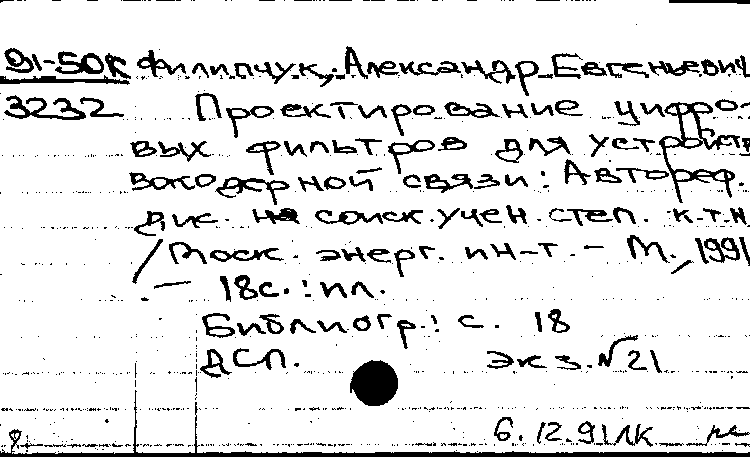 91-50К Филипчук, Александр Евгеньевич
3232 Проектирование цифро-
вых фильтров для устройств
вокодерной связи: Автореф.
дис. на соиск. учен. степ. к.т.н
/Моск. энерг. ин-т. - М., 1991
. - 18с. : ил.
Библиогр.: с. 18
ДСП. экз. № 21
6.12.91 ЛК